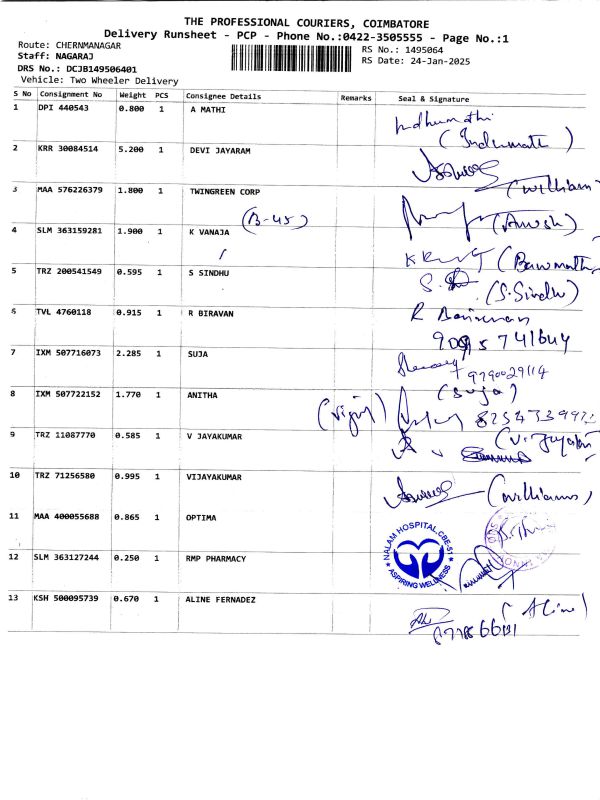 THE PROFESSIONAL COURIERS, COIMBATORE
Delivery Runsheet - PCP - Phone No.:0422-3505555 - Page No.:1
Route: CHERNMANAGAR
RS No.: 1495064
Staff: NAGARAJ
RS Date: 24-Jan-2025
DRS No.: DCJB149506401
Vehicle: Two Wheeler Delivery
S No Consignment No Weight PCS Consignee Details Remarks Seal & Signature
1 DPI 440543 0.800 1 A MATHI
Indhumathi
(Indumathi)
2 KRR 30084514 5.200 1 DEVI JAYARAM
(william)
3 MAA 576226379 1.800 1 TWINGREEN CORP
(B-45)
4 SLM 363159281 1.900 1 K VANAJA
5 TRZ 200541549 0.595 1 S SINDHU
(S.Sindhu)
6 TVL 4760118 0.915 1 R BIRAVAN
7 IXM 507716073 2.285 1 SUJA
9790029114
(Suja)
8 IXM 507722152 1.770 1 ANITHA
9 TRZ 11087770 0.585 1 V JAYAKUMAR
10 TRZ 71256580 0.995 1 VIJAYAKUMAR
(williams)
11 MAA 400055688 0.865 1 OPTIMA
12 SLM 363127244 0.250 1 RMP PHARMACY
NALAM HOSPITAL, CBE-51
ASPIRING WELLNESS
13 KSH 500095739 0.670 1 ALINE FERNADEZ
(Aline)